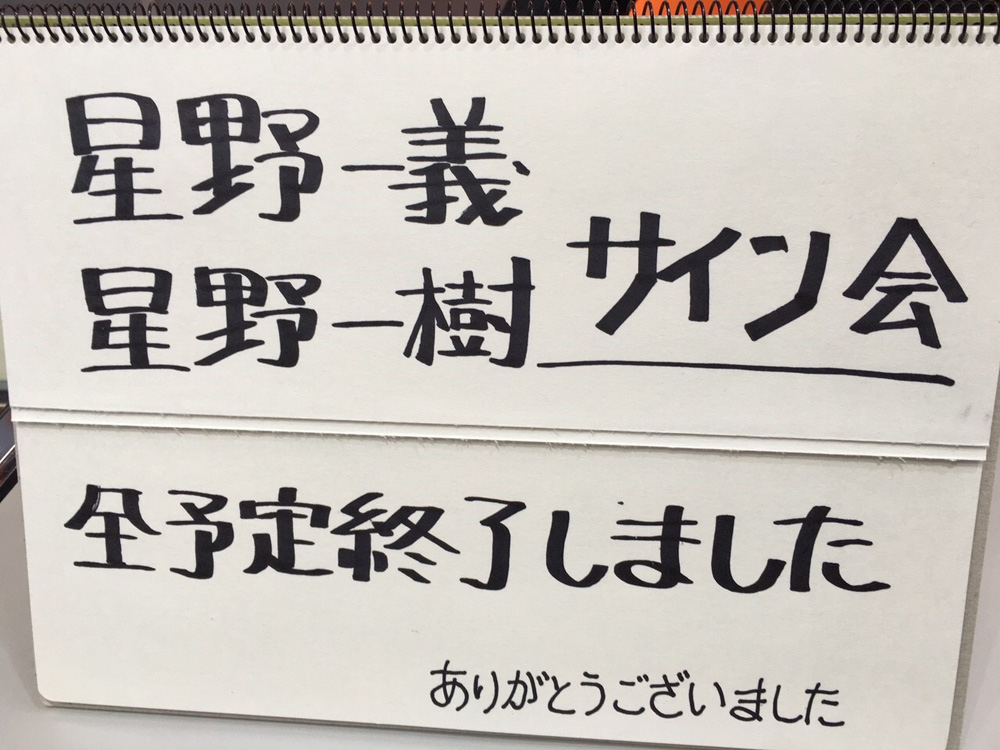 星野一義
星野一樹 サイン会
全予定終了しました
ありがとうございました